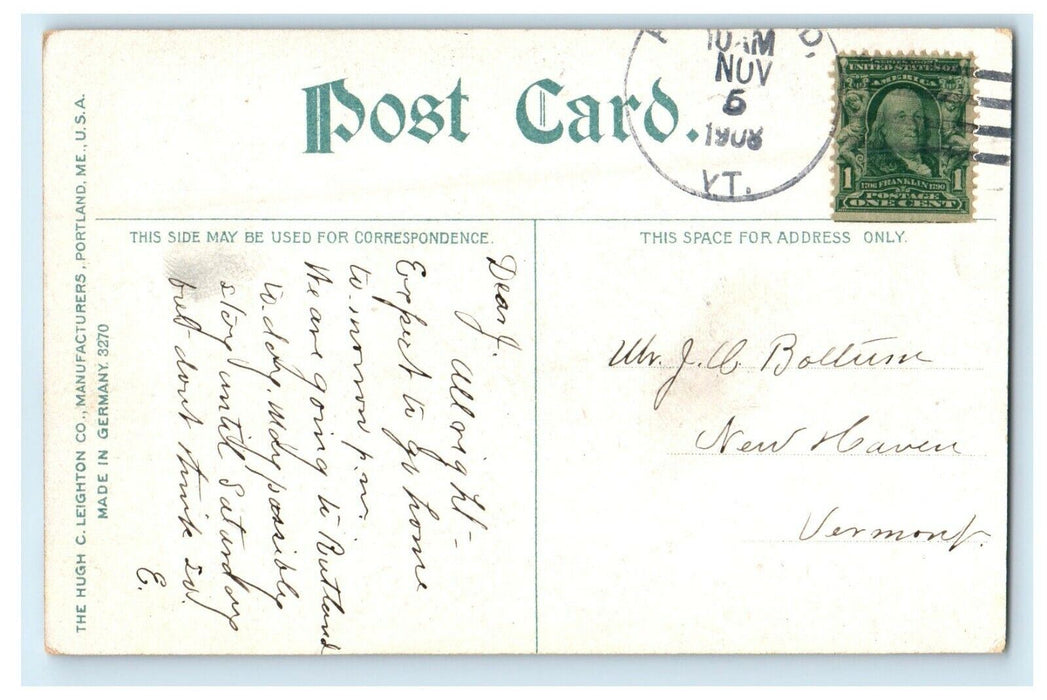 Post Card.
10 AM
NOV
6
1908
VT.
SERIES 1902
UNITED STATES OF
AMERICA
1 1706 FRANKLIN 1790 1
POSTAGE
ONE CENT
THIS SIDE MAY BE USED FOR CORRESPONDENCE.
THIS SPACE FOR ADDRESS ONLY.
THE HUGH C. LEIGHTON CO., MANUFACTURERS, PORTLAND, ME., U.S.A.
MADE IN GERMANY. 3270
Dear J.
All right -
Expect to go home
to-morrow p.m.
We are going to Rutland
to-day. May possibly
stay until Saturday
but dont think so.
E.
Mr. J. Bottum
New Haven
Vermont.